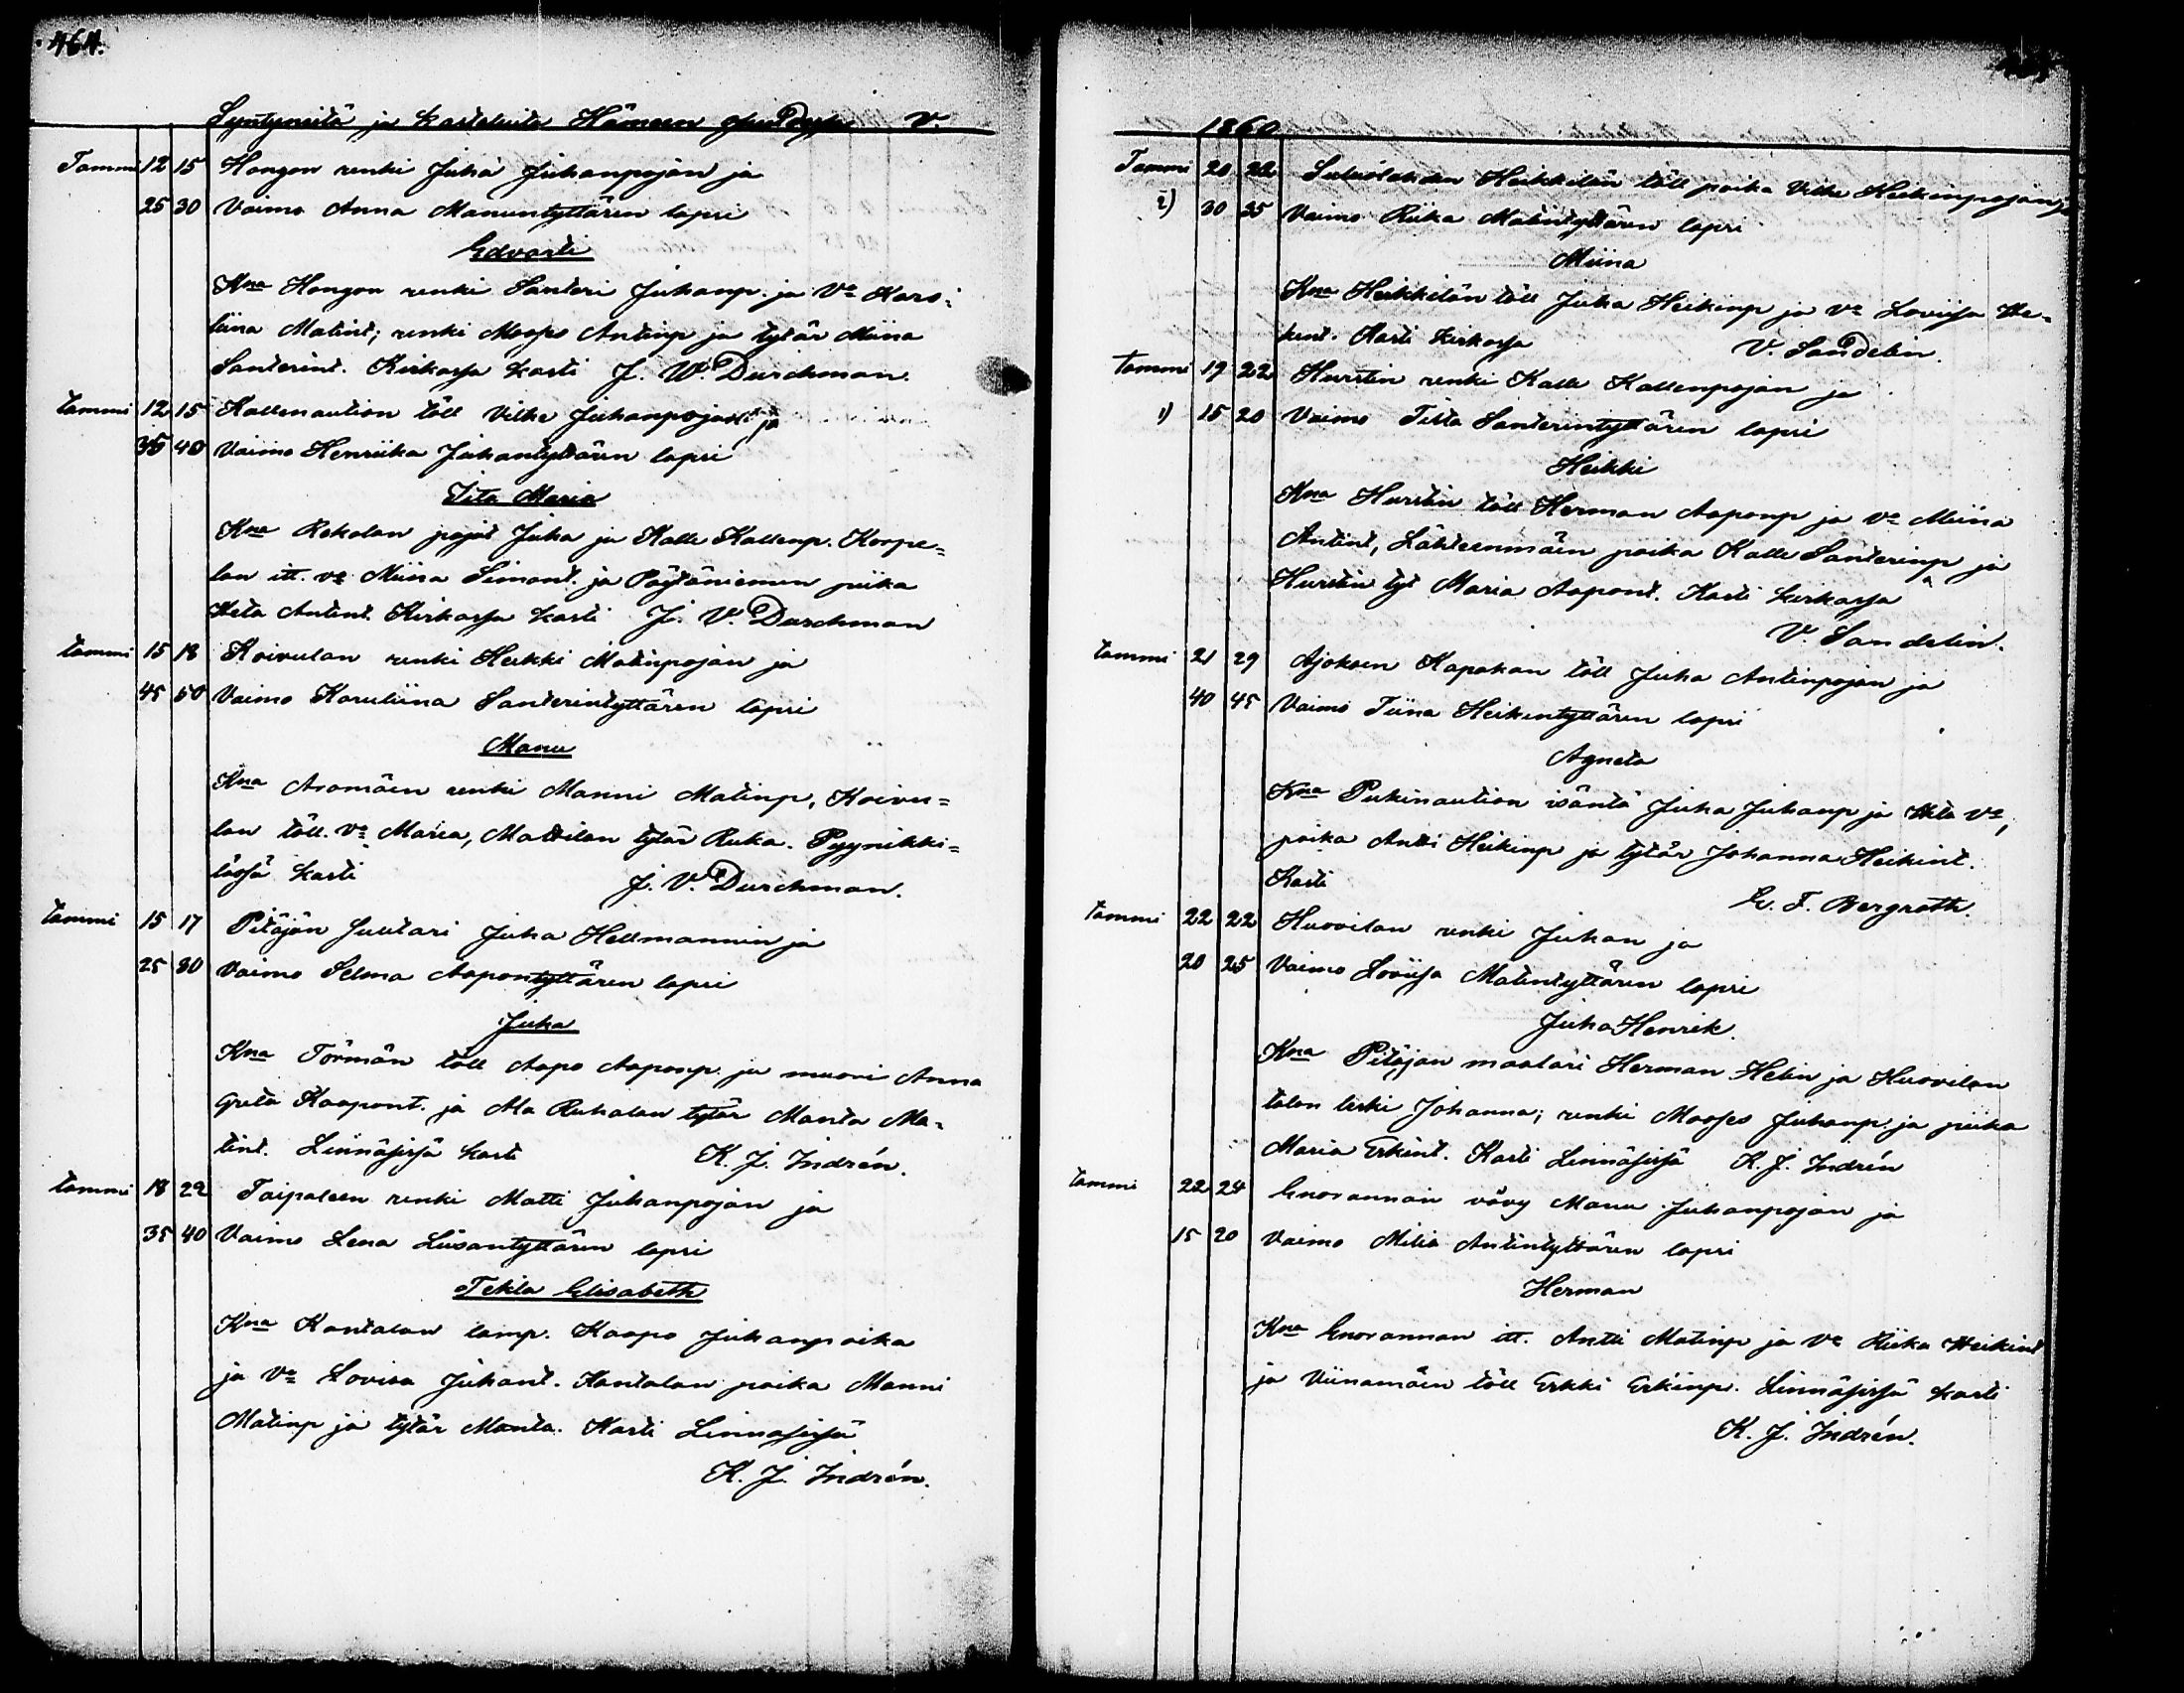 464.
Syntyneitä ja kasteleita Hämeen V.
Tammi 12 15 Hongon renki Juha Juhanpojan ja
25 30 Vaimo Anna Manuntyttären lapsi
Edvarti
Kna Hongon renki Santeri Juhanp. ja Va Karo=
liina Matint; renki Mooses Antinp ja tytär Miina
Santerint. Kirkossa kasti J. W. Durchman.
tammi 12 15 Kallenaution töll Vilke Juhanpojan ja
35 40 Vaimo Henriika Juhantyttären lapsi
Iita Maria
Kna Rekolan pojat Juha ja Kalle Kallenp. Korpe=
lan itt. va Miina Simont. ja Pöytäniemen piika
Heta Antint. Kirkossa kasti J. V. Durchman
tammi 15 18 Koivulan renki Heikki Matinpojan ja
45 50 Vaimo Karuliina Santerintyttären lapsi
Manu
Kna Aromäen renki Manni Matinp, Koivu=
lan töll. va Maria, Mattilan tytär Ruka. Pyynikki=
lässä kasti J. V. Durchman.
tammi 15 17 Pitäjän Suutari Juha Hellmannin ja
25 30 Vaimo Selma Aapontyttären lapsi
Juha
Kna Törmän töll Aapo Aaponp. ja muori Anna
Greta Kaapont. ja Ala Ruhalan tytär Manta Ma=
tint. Linnäsissä kasti K. J. Indrén.
tammi 18 22 Taipaleen renki Matti Juhanpojan ja
35 40 Vaimo Lena Liisantyttären lapsi
Tekla Elisabeth
Kna Kantalan lamp. Kaapo Juhanpoika
ja Va Lovisa Juhant. Kantalan poika Manni
Matinp ja tytär Manta. Kasti Linnasissä
K. J. Indrén.
1860
Tammi 20 22 Heikkilän töll poika Ville Heikinpojan ja
2) 30 35 Vaimo Riika Matintyttären lapsi
Miina
Kna Heikkilän töll Juha Heikinp ja va Loviisa He=
kint. Kasti kirkossa V. Sandelin.
tammi 19 22 Hurstin renki Kalle Kallenpojan ja
1) 15 20 Vaimo Tilta Santerintyttären lapsi
Heikki
Kna Hurstin töll Herman Aaponp ja va Miina
Antint, Lähteenmäen poika Kalle Santerinp ja
Hurstin tyt Maria Aapont. Kasti kirkossa
V. Sandelin.
tammi 21 29 Ajoksen Kapakan töll Juha Antinpojan ja
40 45 Vaimo Tiina Heikintyttären lapsi
Agneta
Kna Pukinaution isäntä Juha Juhanp ja Heta va,
poika Antti Heikinp ja tytär Johanna Heikint.
Kasti E. F. Bergroth.
tammi 22 22 Huovilan renki Juhan ja
20 25 Vaimo Loviisa Matintyttären lapsi
Juha Henrik.
Kna Pitäjän maalari Herman Helin ja Huovilan
talon leski Johanna; renki Mooses Juhanp. ja piika
Maria Erkint. Kasti Linnäsissä K. J. Indrén
tammi 22 24 Enorannan vävy Manu Juhanpojan ja
15 20 Vaimo Milia Antintyttären lapsi
Herman
Kna Enorannan itt. Antti Matinp ja va Riika Heikint
ja Viinamäen töll Erkki Erkinp. Linnäsissä kasti
K. J. Indrén.